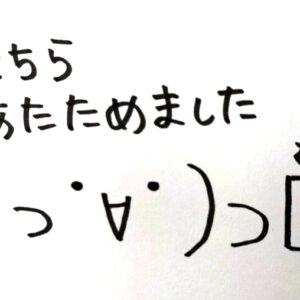 ちら
あたためました
っ･∀･)っ